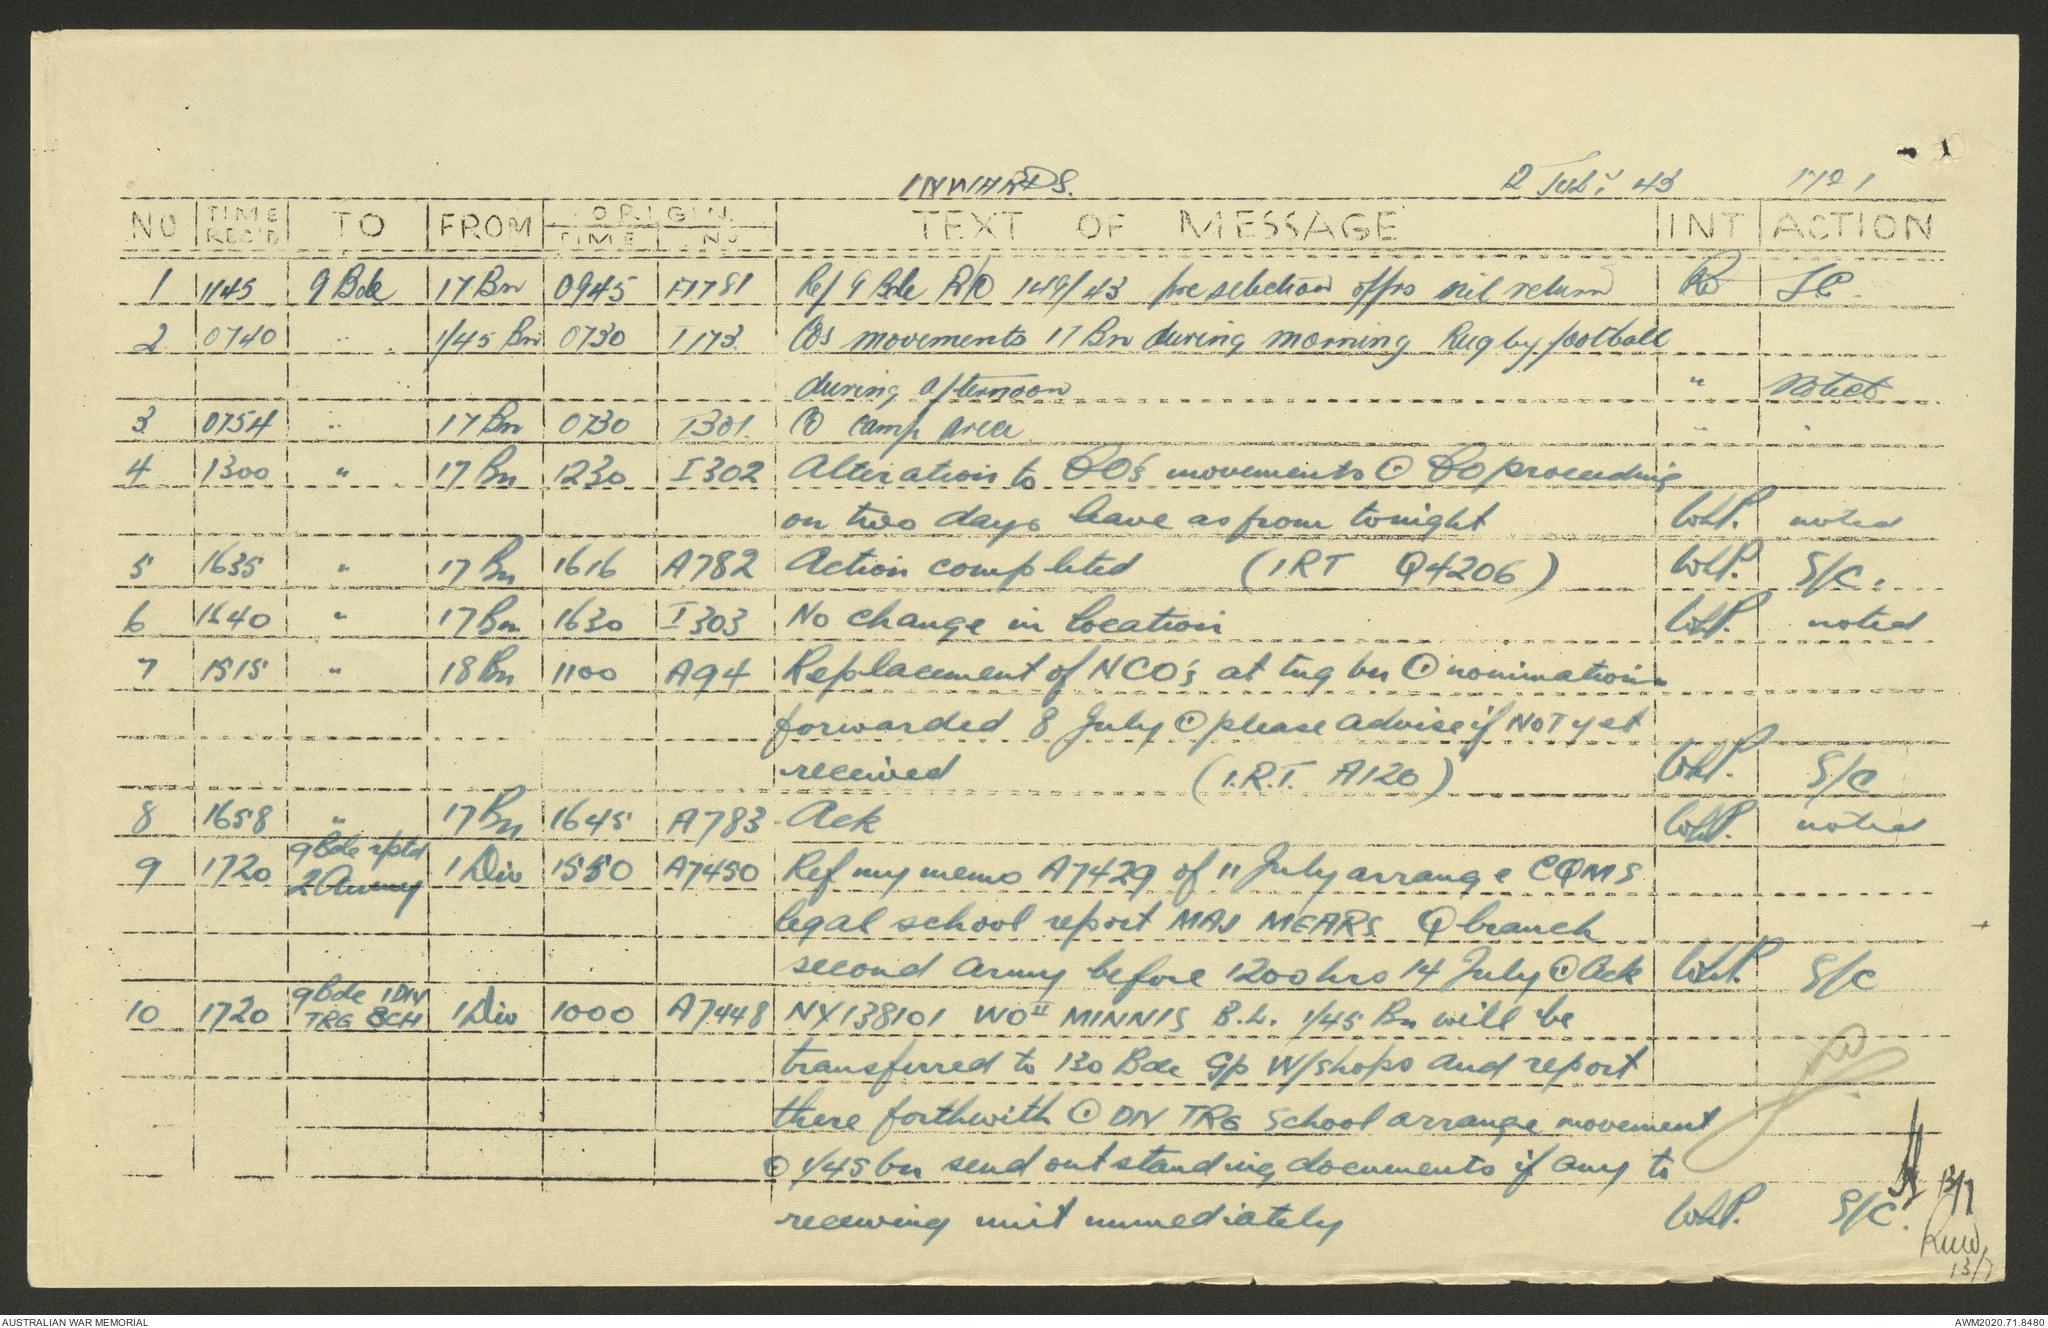 INWARDS. 12 July 43
NO TIME REC'D TO FROM ORIGIN TIME NO TEXT OF MESSAGE INT ACTION
1 1145 9 Bde 17 Bn 0945 A781 Ref 9 Bde R/O 149/43 pre selection offrs nil return
2 0740 " 1/45 Bn 0730 I 173 COs movements 17 Bn during morning Rugby football
during afternoon " Noted
3 0754 " 17 Bn 0730 I301. CO camp area " "
4 1300 " 17 Bn 1230 I302 Alteration to CO's movements ⨀ CO proceeding
on two days leave as from tonight WLP. noted
5 1635 " 17 Bn 1616 A782 Action completed (IRT Q4206) WLP. S/C.
6 1640 " 17 Bn 1630 I303 No change in location WLP. noted
7 1515 " 18 Bn 1100 A94 Replacement of NCO's at trg bn ⨀ nominations
forwarded 8 July ⨀ please advise if NOT yet
received (I.R.T. A120) WLP. S/C
8 1658 " 17 Bn 1645 A783. Ack WLP. noted
9 1720 9 Bde rptd 2 Army 1 Div 1550 A7450 Ref my memo A7429 of 11 July arrange CQMS
legal school report MAJ MEARS Q branch
second Army before 1200 hrs 14 July ⨀ Ack WLP. S/C
10 1720 9 Bde 1 DIV TRG SCH 1 Div 1000 A7448 NX138101 WO II MINNIS B.L. 1/45 Bn will be
transferred to 130 Bde Gp W/shops and report
there forthwith ⨀ DIV TRG School arrange movement
⨀ 1/45 bn send outstanding documents if any to
receiving unit immediately WLP. S/C.
13/7
13/7
AUSTRALIAN WAR MEMORIAL AWM2020.71.8480